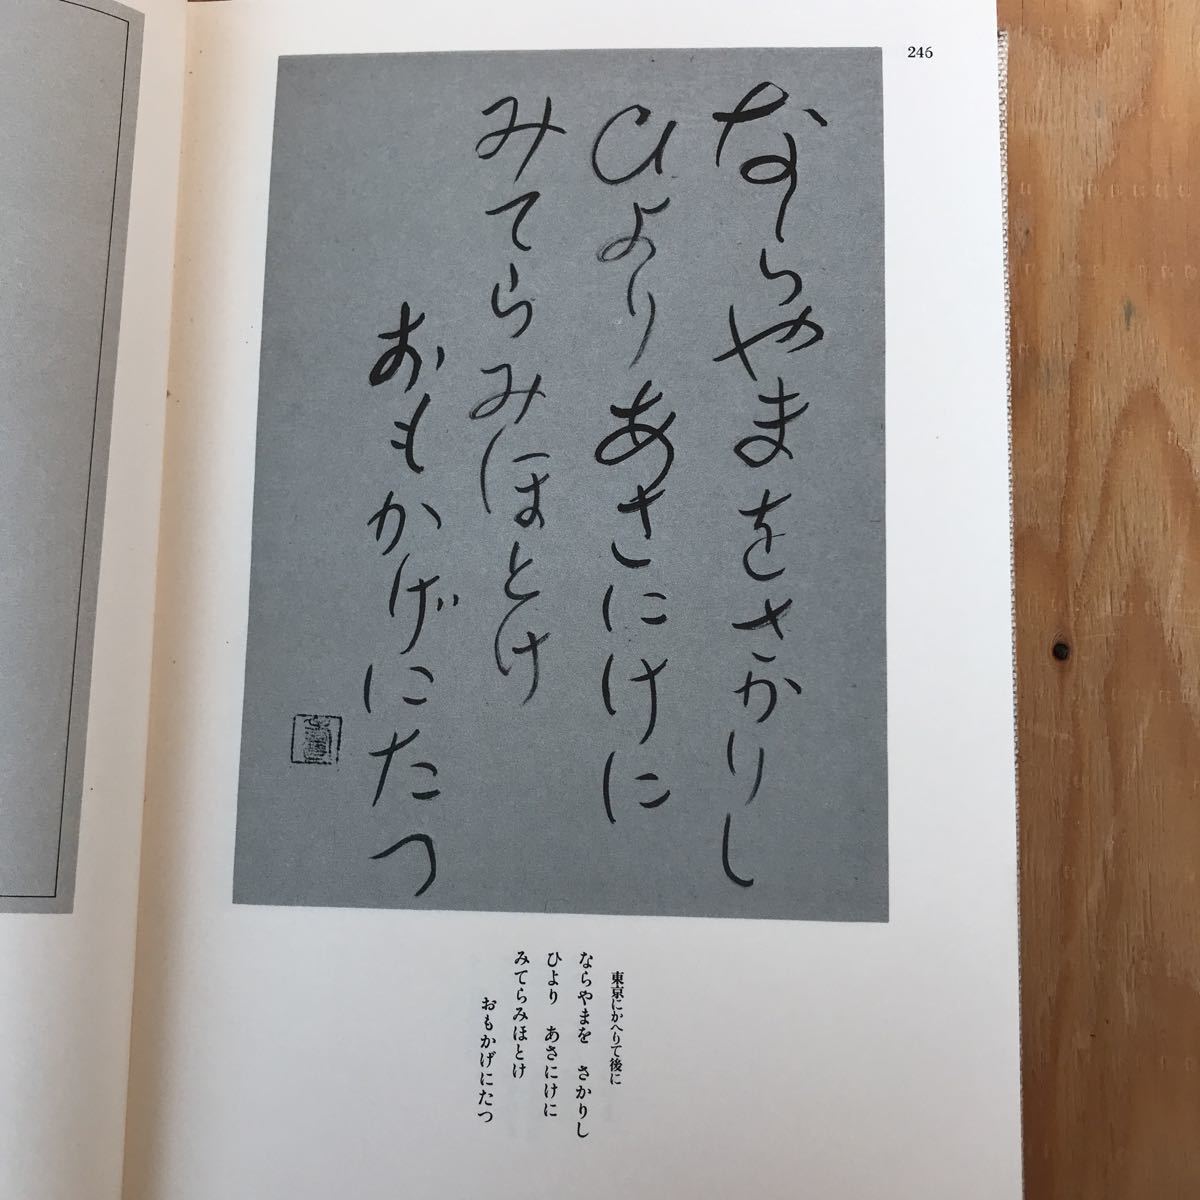 246
ならやまをさかりし
ひよりあさにけに
みてらみほとけ
おもかげにたつ
東京にかへりて後に
ならやまを　さかりし
ひより　あさにけに
みてらみほとけ
おもかげにたつ